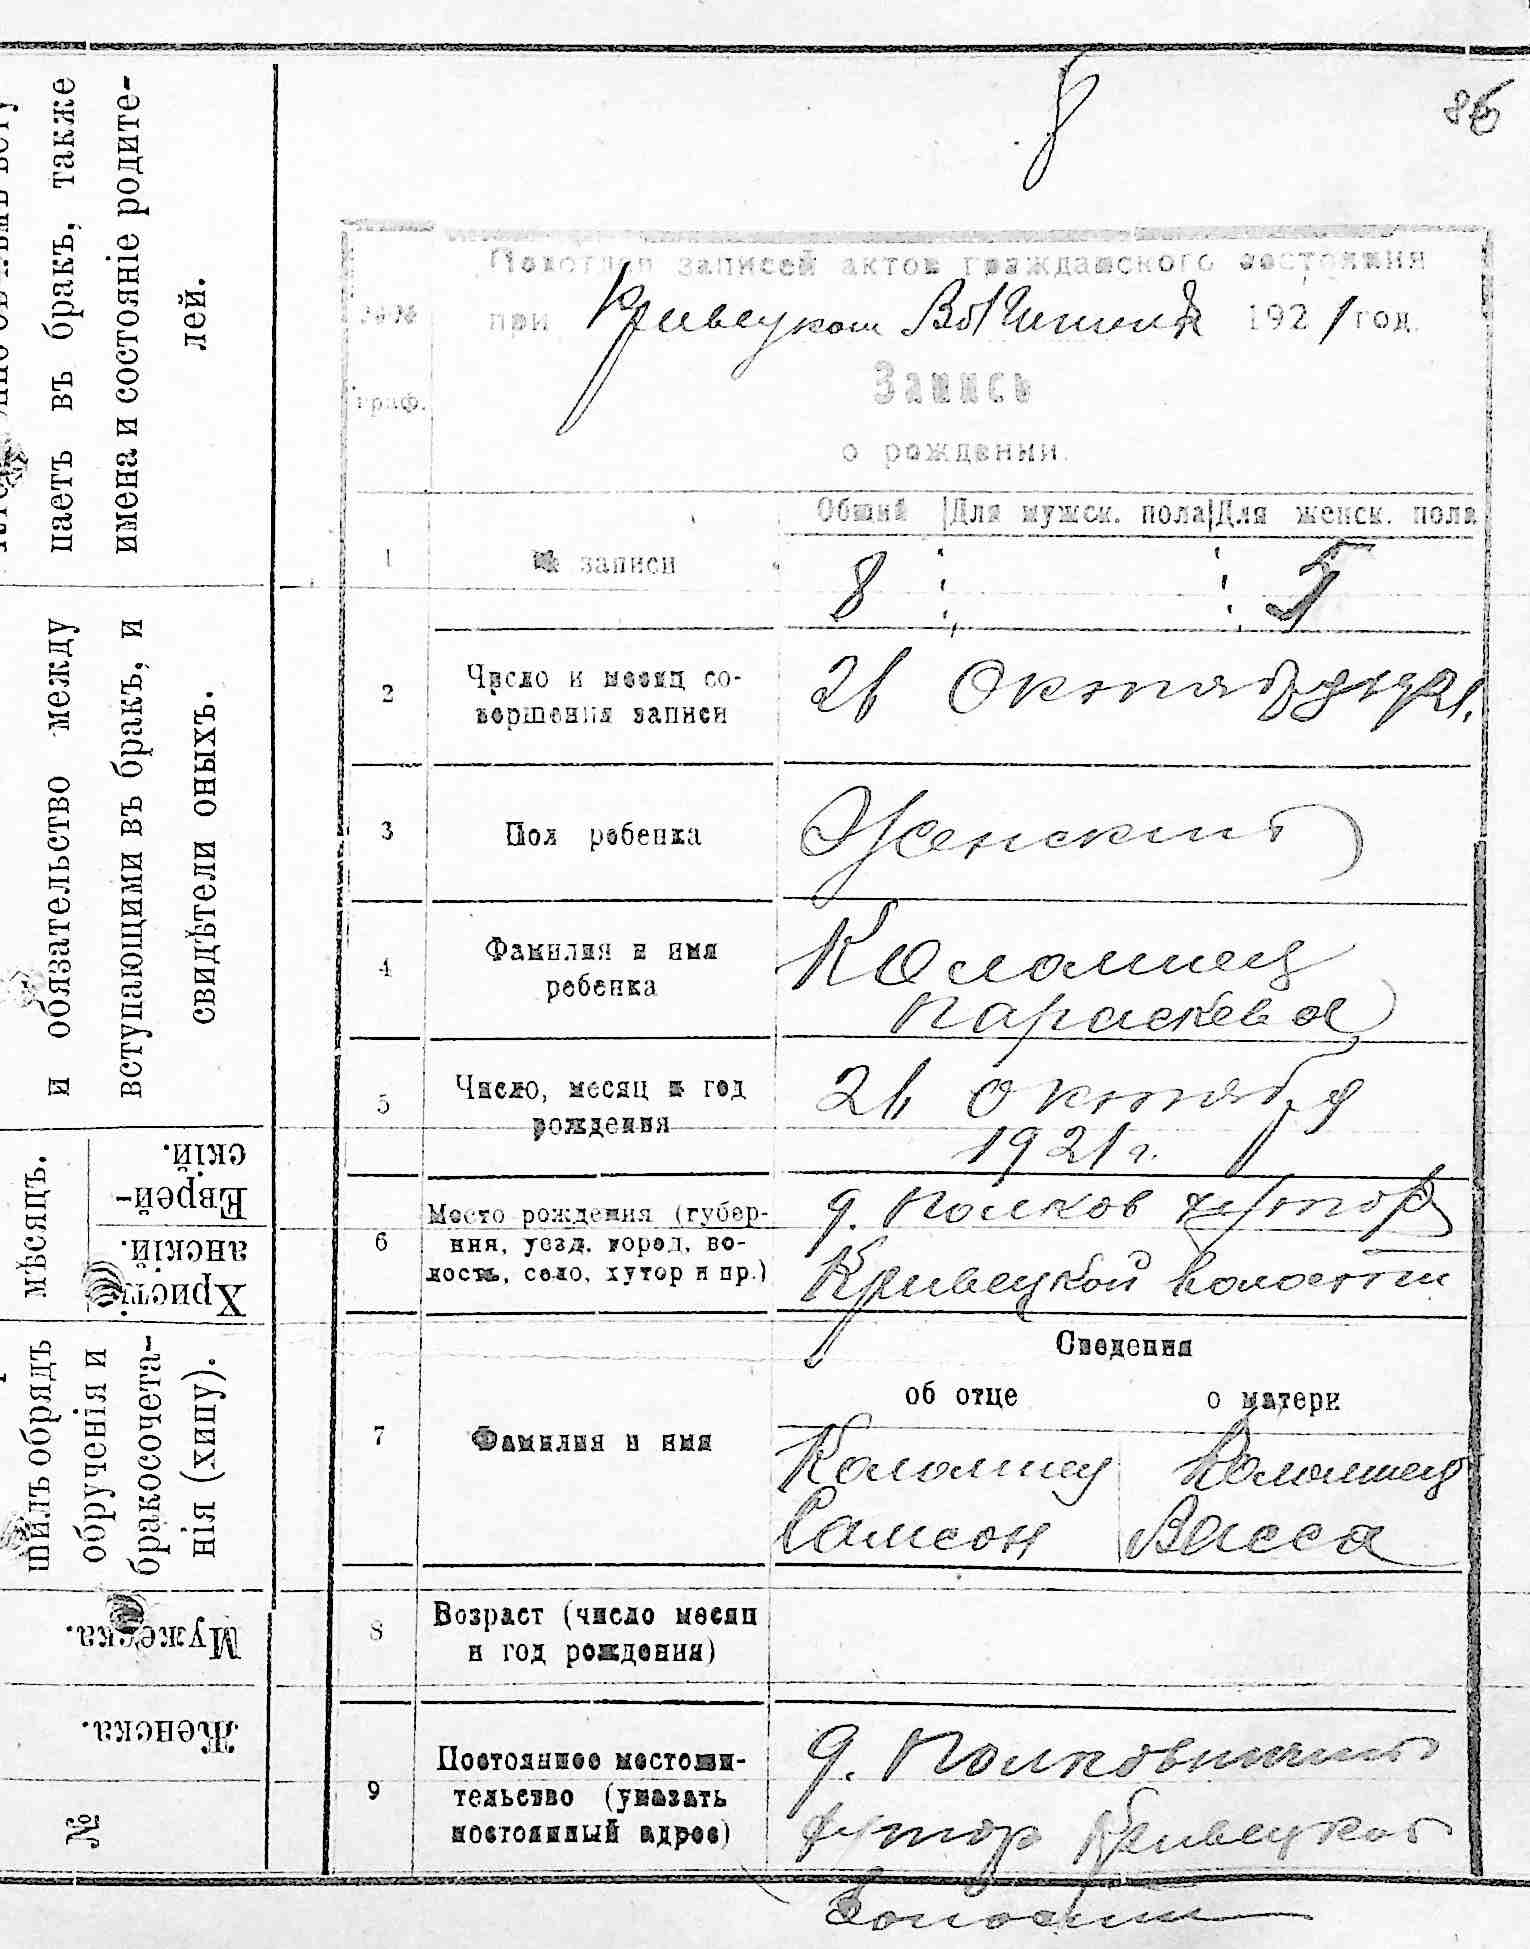 8
86
пает въ бракъ, также
имена и состояніе родите-
лей.
и обязательство между
вступающими въ бракъ, и
свидѣтели оныхъ.
мѣсяцъ.
Еврей-
скій.
Христі-
анскій.
шилъ обрядъ
обрученія и
бракосочета-
нія (хипу).
Мужеска.
Женска.
№
№№
граф.
Подотдел записей актов гражданского состояния
при Кривецком 1921 год.
Запись
о рождении.
Общий Для мужск. пола Для женск. пола
1 № записи 8 5
2 Число и месяц со-
вершения записи
21 Октября 1921.
3 Пол ребенка Женский
4 Фамилия и имя
ребенка
Коломиец
Параскева
5 Число, месяц и год
рождения
21 октября
1921 г.
6 Место рождения (губер-
ния, уезд, город, во-
лость, село, хутор и пр.)
д. Полков хутор
Кривецкой волости
Сведения
об отце о матери
7 Фамилия и имя
Коломиец Коломиец
Самсон Васса
8 Возраст (число месяц
и год рождения)
9 Постоянное местожи-
тельство (указать
постоянный адрес)
д. Полковничий
хутор Кривецкой
Волости